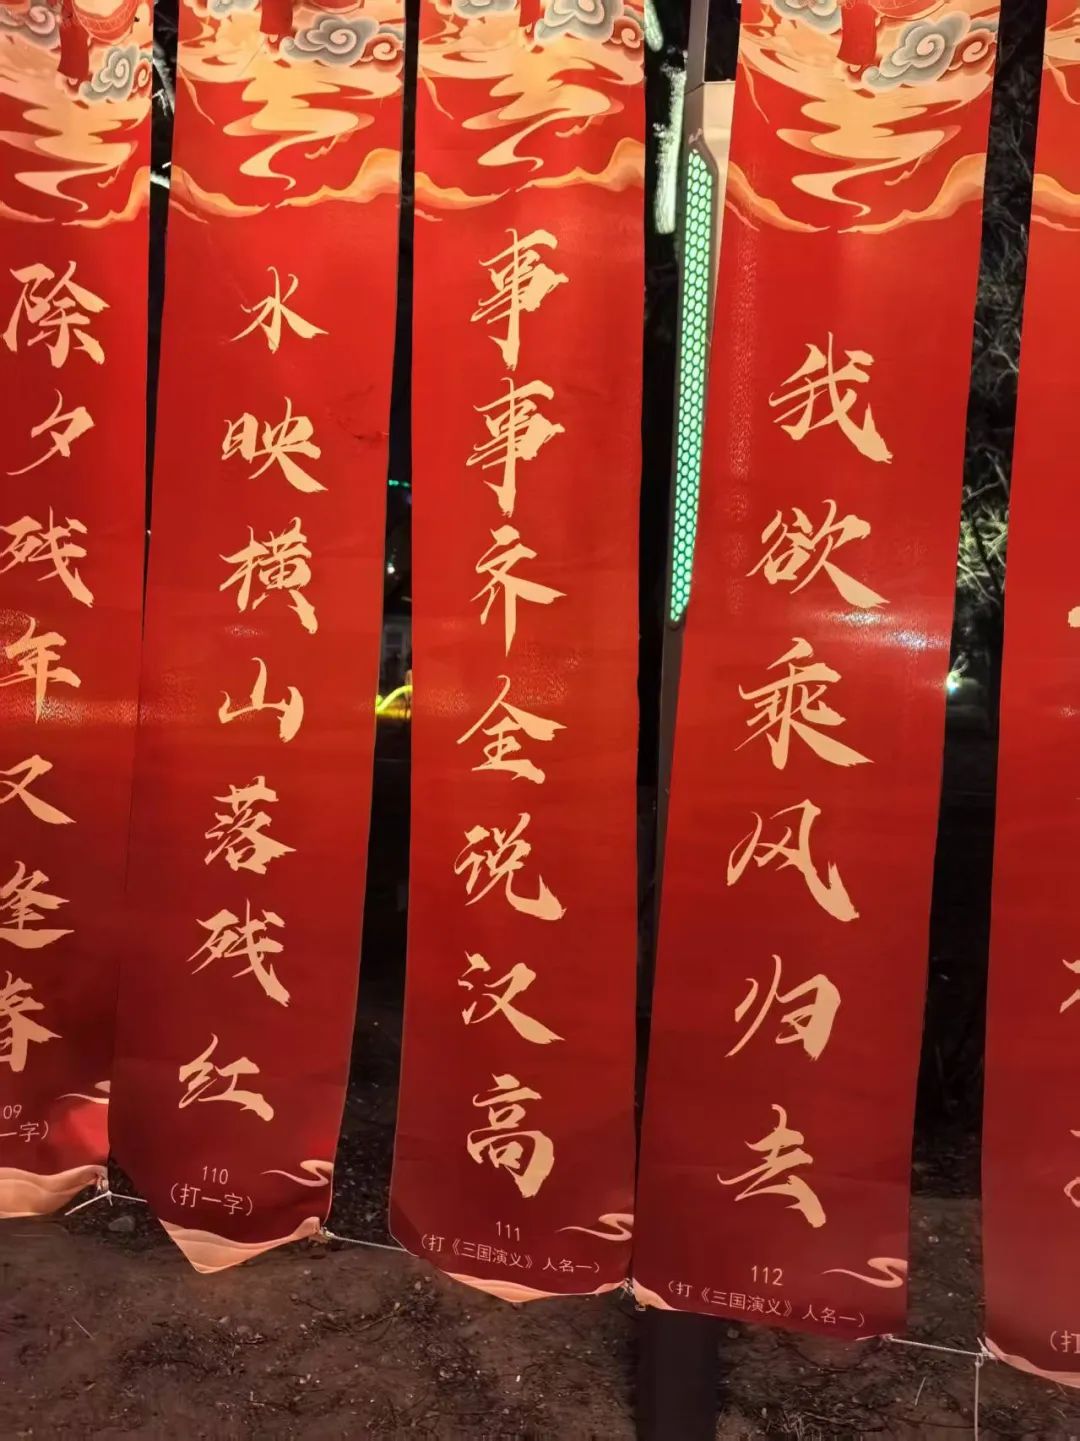 除夕残年又逢春
09
一字）
水映横山落残红
110
（打一字）
事事齐全说汉高
111
（打《三国演义》人名一）
我欲乘风归去
112
（打《三国演义》人名一）
（打